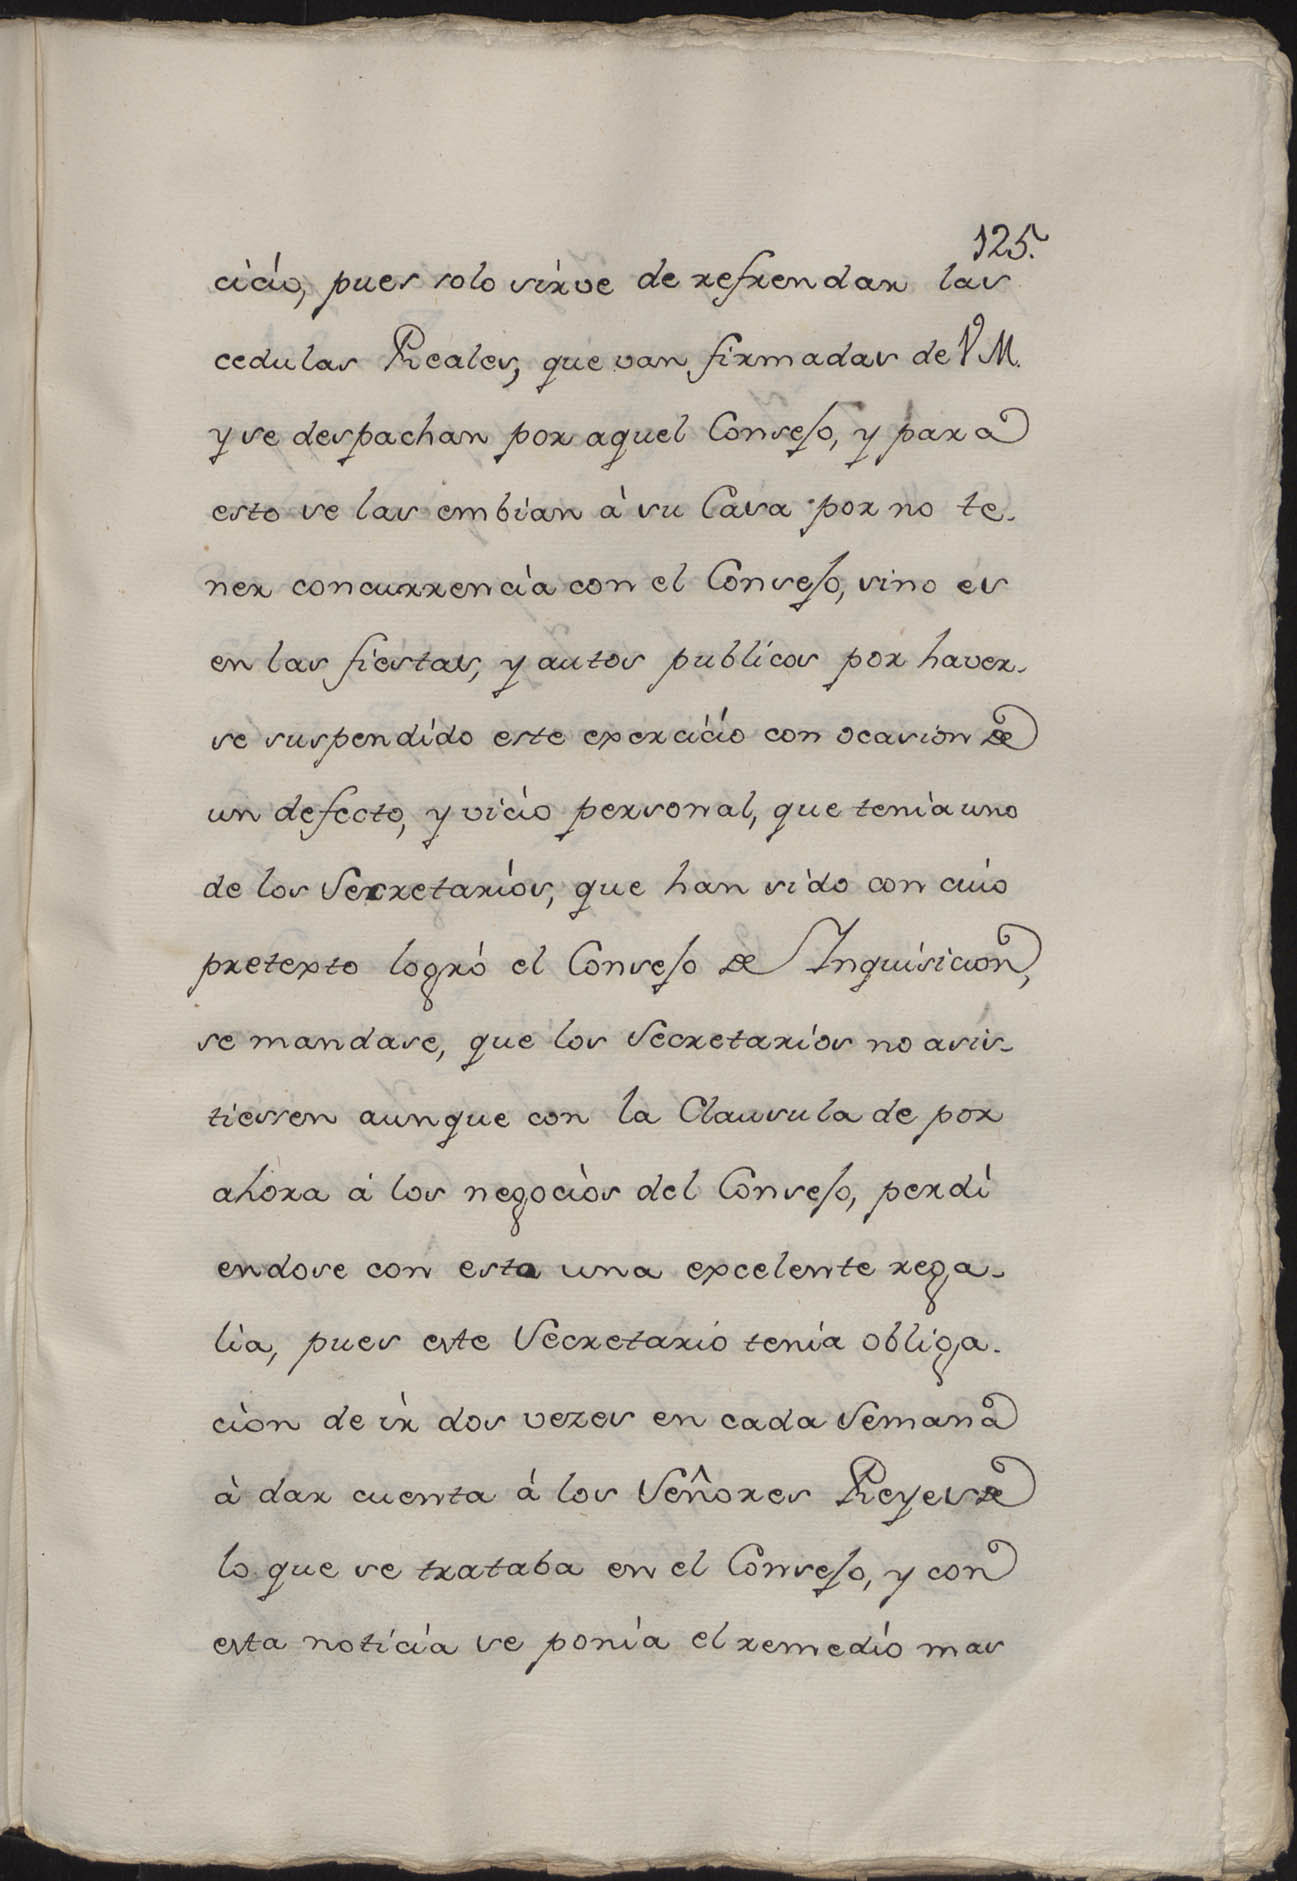 125.
cicio, pues solo sirve de refrendar las
cedulas Reales, que van firmadas de V M.
y se despachan por aquel Consejo, y para
esto se las embian à su Casa por no te-
ner concurrencia con el Consejo, sino es
en las fiestas, y autos publicos por haver-
se suspendido este exercicio con ocasion de
un defecto, y vicio personal, que tenia uno
de los Secretarios, que han sido con cuio
pretexto logró el Consejo de Inquisicion,
se mandase, que los Secretarios no asis-
tiessen aunque con la Clausula de por
ahora á los negocios del Consejo, perdi
endose con esto una excelente rega-
lia, pues este Secretario tenia obliga-
cion de ir dos vezes en cada Semana
à dar cuenta á los Señores Reyes de
lo que se trataba en el Consejo, y con
esta noticia se ponia el remedio mas